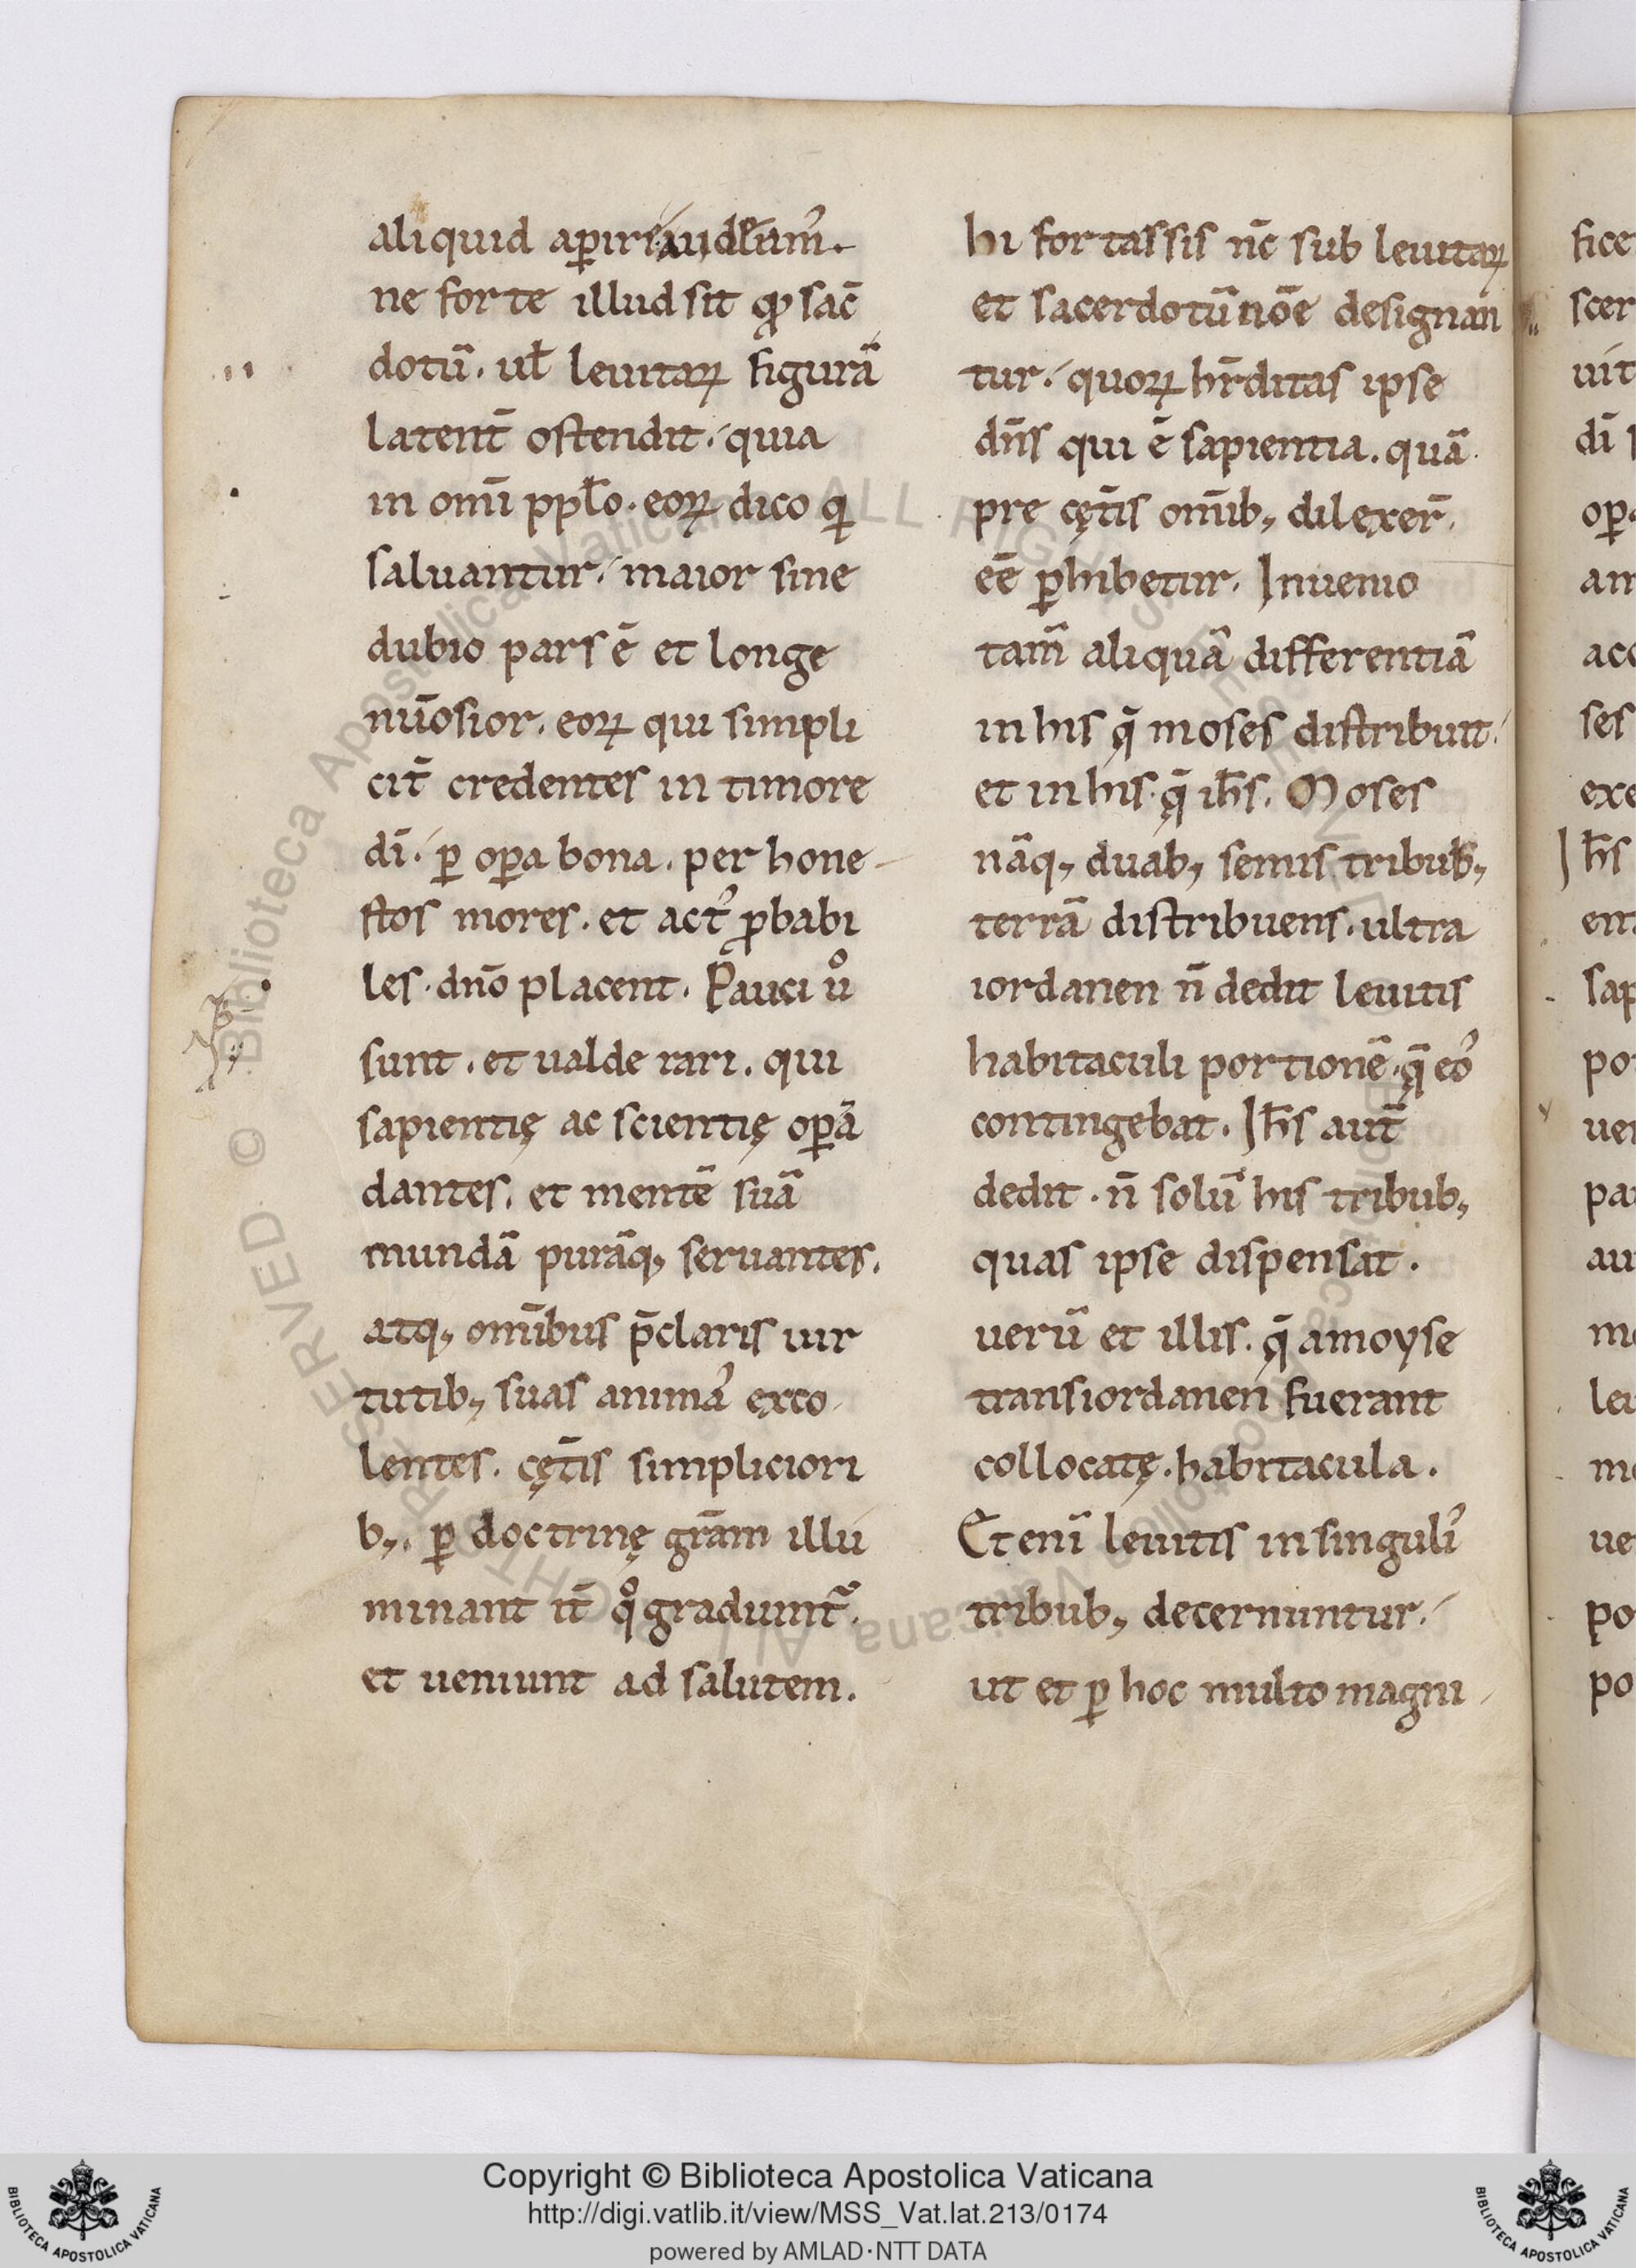 aliquid aꝑire audeam᷒.
ne forte illud sit qđ sac̄
dotū. ul̄ leuitaꝝ figurā
latent̄ ostendit. quia
in om̄i ppl̄o. eoꝝ dico q
saluantur. maior sine
dubio pars ē et longe
nūosior. eoꝝ qui simpli
cit̄ credentes in timore
dī. ꝑ oꝑa bona. per hone
stos mores. et act᷒ ꝓbabi
les. dn̄o placent. Pauci uͦ
sunt. et ualde rari. qui
sapientię ac scientię oꝑā
dantes. et mentē suā
mundā purāq, seruantes.
atq, om̄ibus p̄claris uir
tutib, suas anima᷒ exco
lentes. cęt̄is simpliciori
b,. ꝑ doctrinę gr̄am illu
minant it̄ qͦ gradiunt̄.
et ueniunt ad salutem.
hi fortassis nc̄ sub leuitaꝝ
et sacerdotū nōe designan
tur. quoꝝ hr̄ditas ipse
dn̄s qui ē sapientia. quā
pre cęt̄is om̄ib, dilexer̄.
eē ꝓhibetur. Inuenio
tam̄ aliquā differentiā
in his q̄ moses distribuit.
et in his. q̄ ih̄s. Moses
nāq, duab, semis tribub,
terrā distribuens. ultra
iordanen n̄ dedit leuitis
habitaculi portionē. q̄ eo᷒
contingebat. Ih̄s aut̄
dedit. n̄ solū his tribub,
quas ipse dispensat.
uerū et illis. q̄ amoyse
transiordanen fuerant
collocatę. habitacula.
Et enī leuitis in singuli᷒
tribub, decernuntur.
ut et ꝑ hoc multo magni
fice
scer
uit
dī
oꝑa
am
acc
ses
exe
Ih̄s
ent
sap
por
uer
par
au
mo
leu
mo
ue
po
po
© Biblioteca Apostolica Vaticana ALL RIGHTS RESERVED
Copyright © Biblioteca Apostolica Vaticana
http://digi.vatlib.it/view/MSS_Vat.lat.213/0174
powered by AMLAD·NTT DATA
BIBLIOTECA APOSTOLICA VATICANA
BIBLIOTECA APOSTOLICA VATICANA